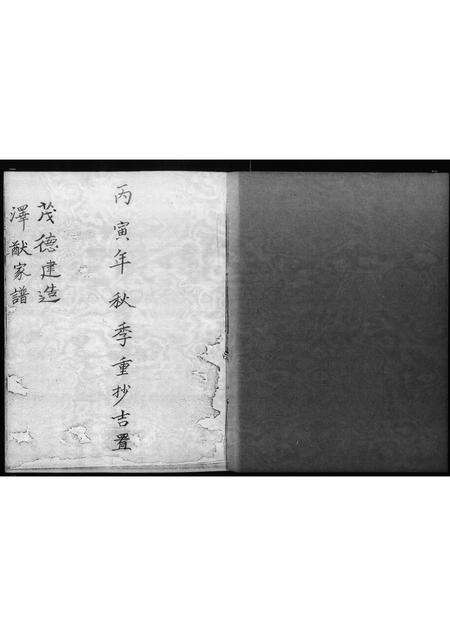 丙寅年秋季重抄吉置
茂德建造
澤猷家譜